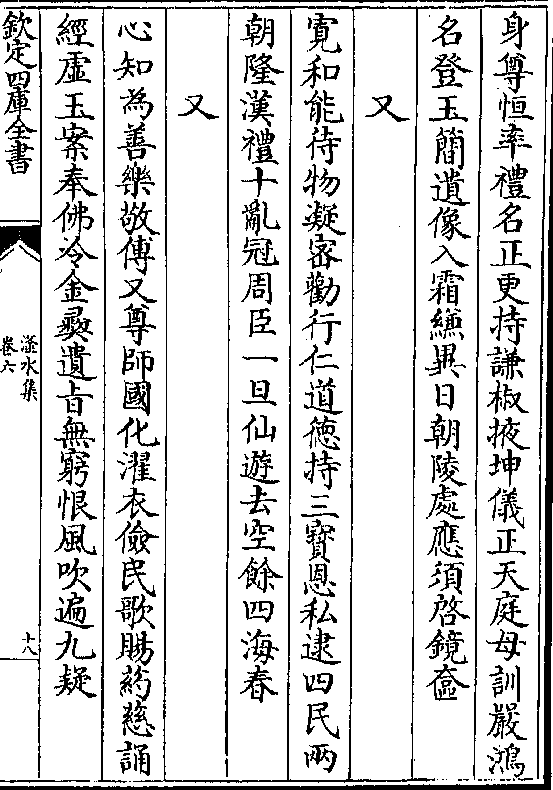 身尊恒率禮名正更持謙椒掖坤儀正天庭母訓嚴鴻
名登玉簡遺像入霜縑異日朝陵處應須啓鏡奩
又
寛和能待物凝宻勸行仁道徳持三寳恩私逮四民兩
朝隆漢禮十亂冠周臣一旦仙遊去空餘四海春
又
心知為善樂敬傅又尊師國化濯衣儉民歌賜藥慈誦
經虛玉案奉佛冷金彞遺㫖無窮恨風吹遍九疑
欽定四庫全書
滏水集
卷六
十八